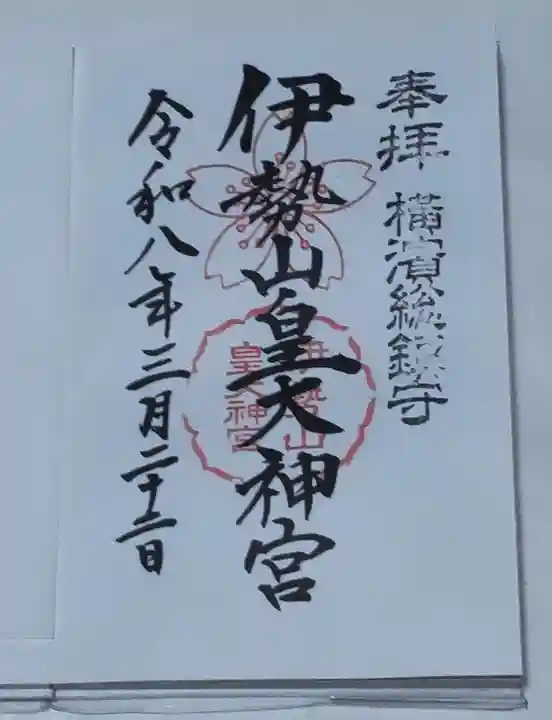 奉拝 横濱総鎮守
伊勢山皇大神宮
伊勢山
皇大神宮
令和八年三月二十二日